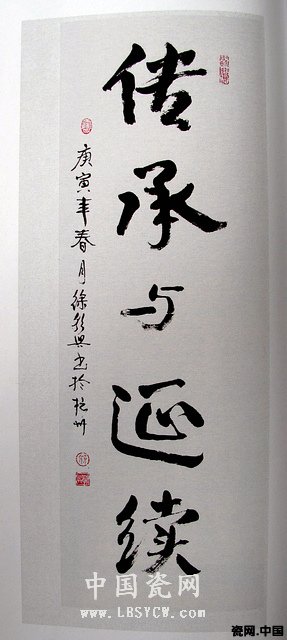 传承与延续
庚寅年春月徐朝兴书于杭州
中国瓷网
www.LBSYCW.COM
瓷网.中国